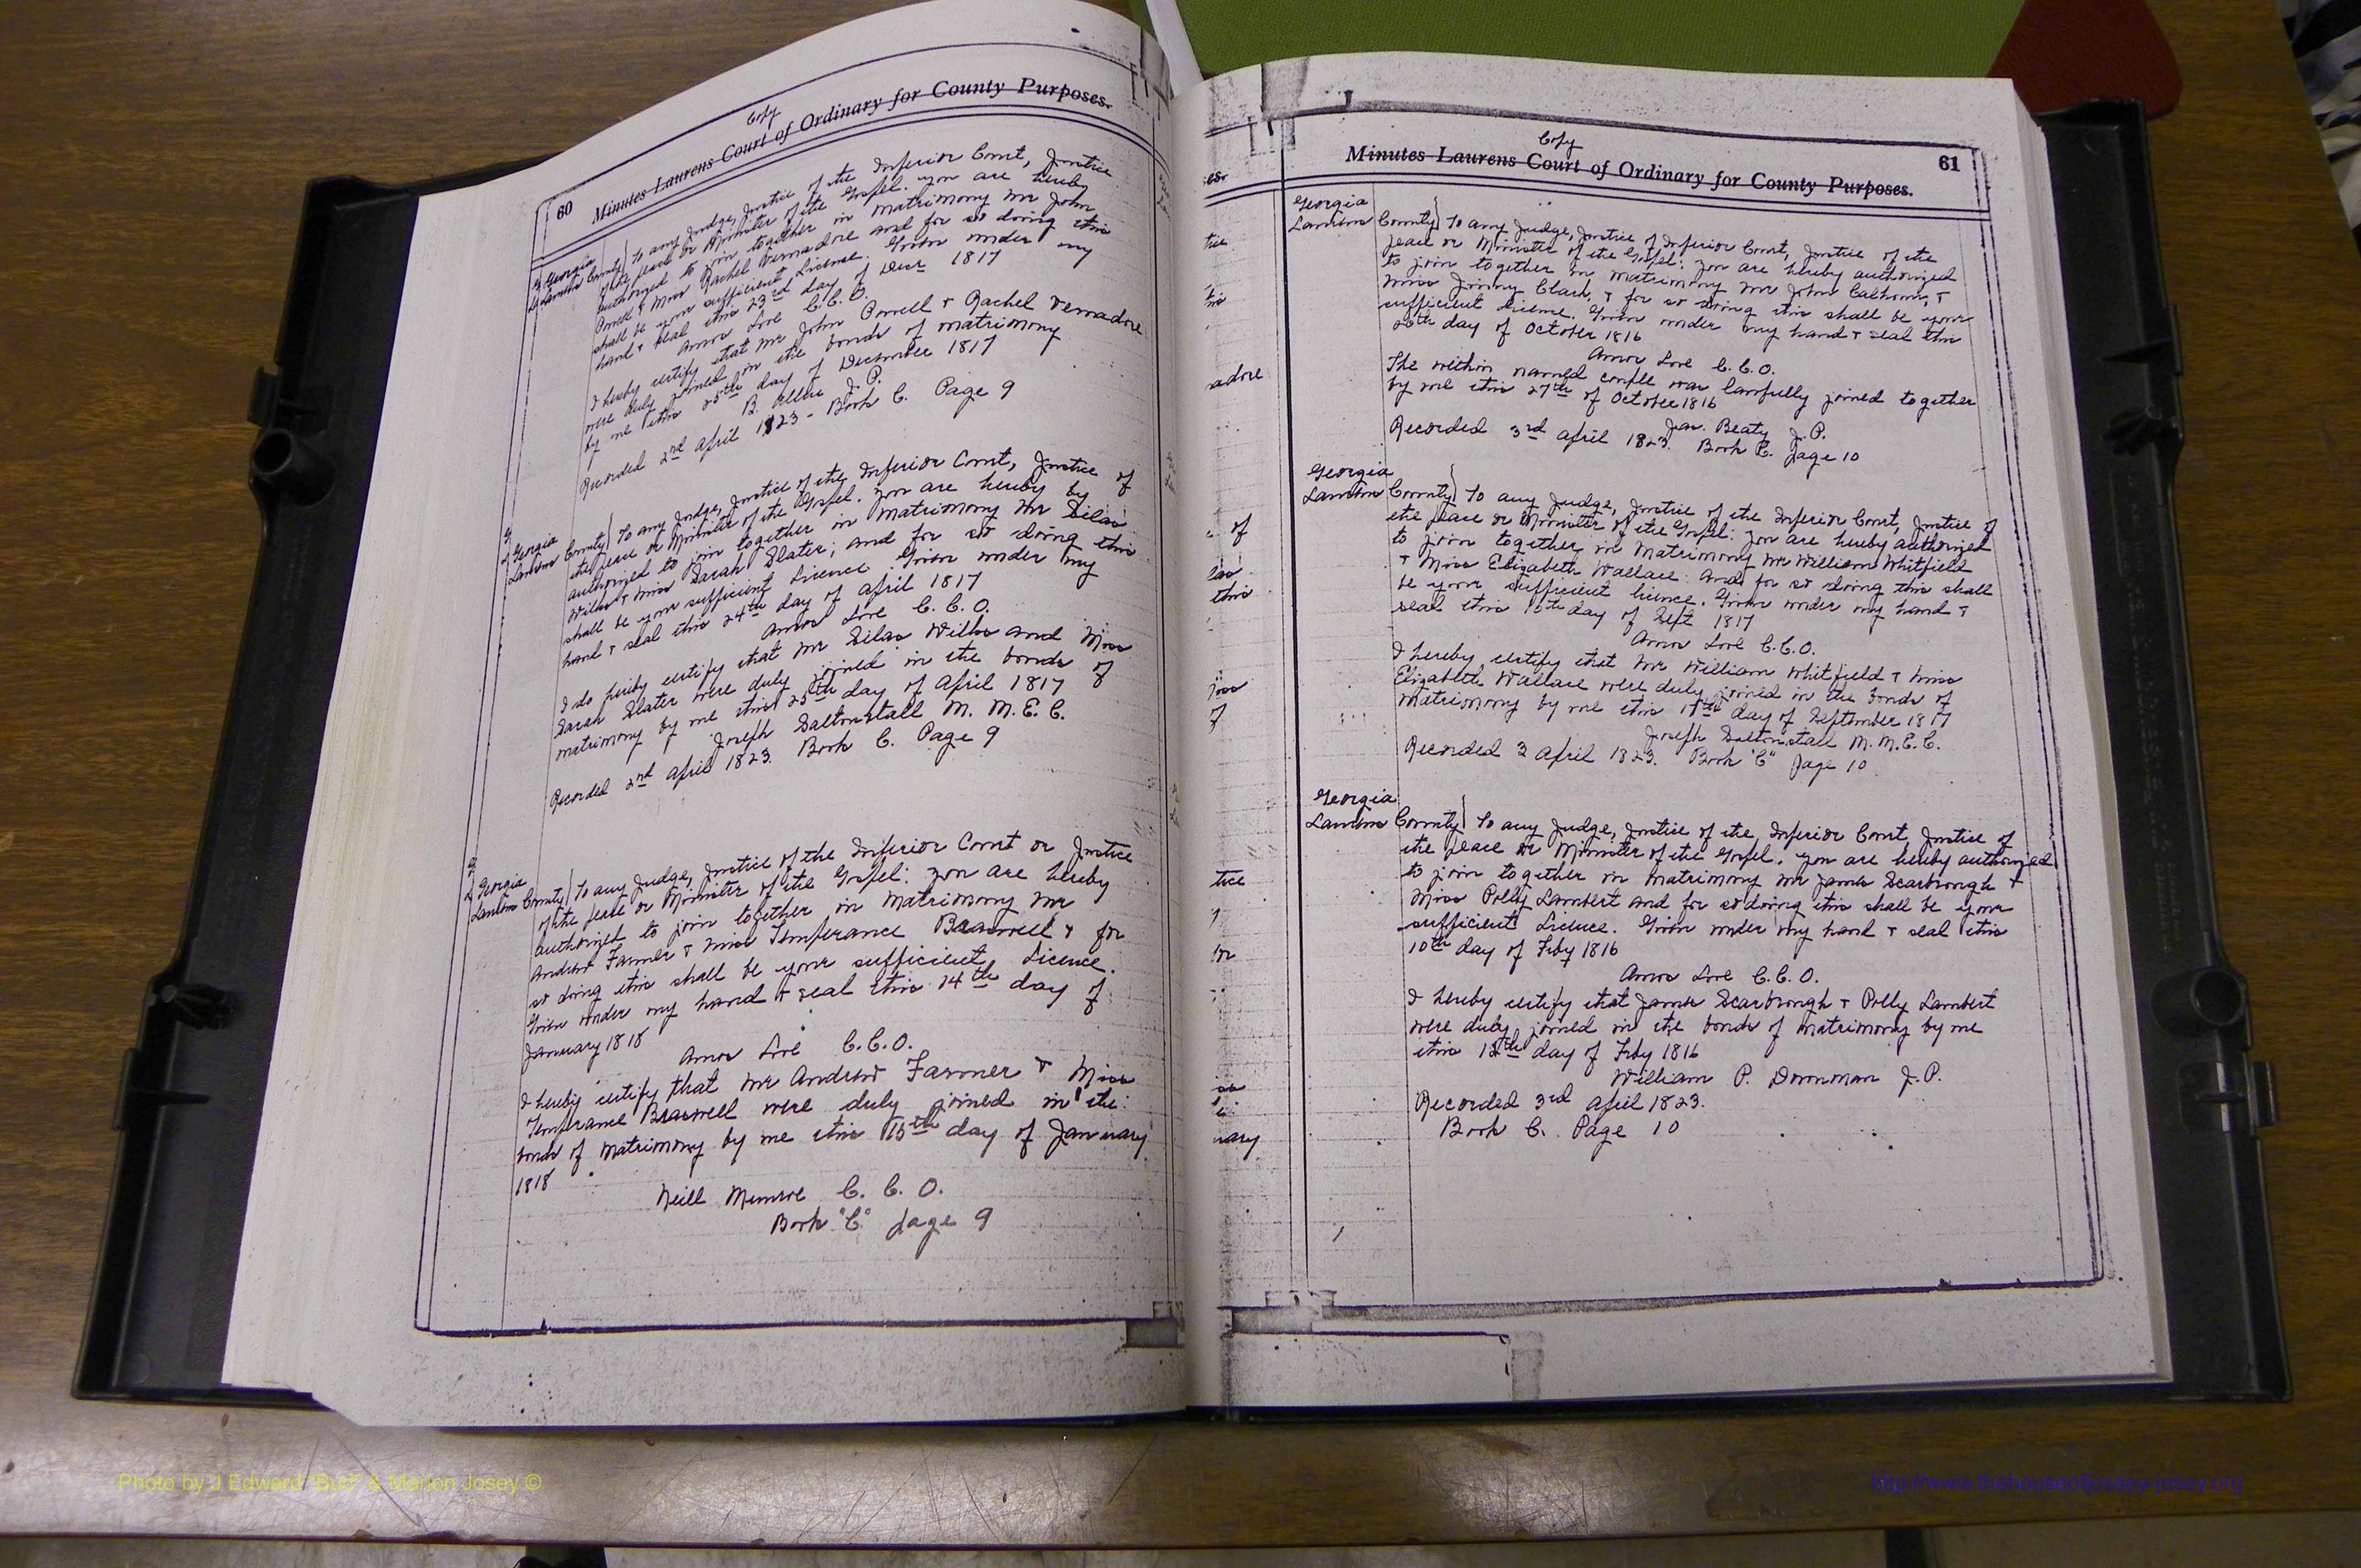 Copy
60 Minutes Laurens Court of Ordinary for County Purposes.
Georgia
Laurens County } To any Judge, Justice of the Inferior Court, Justice
of the peace or Minister of the Gospel. you are hereby
authorized to join together in matrimony Mr John
Powell & Miss Rachel Vernadore and for so doing this
shall be your sufficient License. Given under my
hand & seal this 23rd day of Decr 1817
Amos Love C.C.O.
I hereby certify that Mr John Powell & Rachel Vernadore
were duly joined in the bonds of matrimony
by me this 25th day of December 1817
B. J.P.
Recorded 2nd April 1823 - Book C. Page 9
Georgia
Laurens County } To any Judge, Justice of the Inferior Court, Justice of
the peace or Minister of the Gospel. you are hereby by
authorized to join together in matrimony Mr Silas
Wilks & Miss Sarah Slater; and for so doing this
shall be your sufficient Licence. Given under my
hand & seal this 24th day of April 1817
Amos Love C.C.O.
I do hereby certify that Mr Silas Wilks and Miss
Sarah Slater were duly joined in the bonds of
matrimony by me this 25th day of April 1817
Joseph Saltonstall M. M. E. C.
Recorded 2nd April 1823. Book C. Page 9
Georgia
Laurens County } To any Judge, Justice of the Inferior Court or Justice
of the peace or Minister of the Gospel: you are hereby
authorized to join together in matrimony Mr
Andrew Farmer & Miss Temperance Braswell & for
so doing this shall be your sufficient Licence.
Given under my hand & seal this 14th day of
January 1818
Amos Love C.C.O.
I hereby certify that Mr Andrew Farmer & Miss
Temperance Braswell were duly joined in the
bonds of matrimony by me this 15th day of January
1818
Neill Munroe C. C. O.
Book "C" page 9
Copy
Minutes Laurens Court of Ordinary for County Purposes. 61
Georgia
Laurens County } To any Judge, Justice of Inferior Court, Justice of the
peace or Minister of the Gospel: you are hereby authorized
to join together in matrimony Mr John Calhoun, &
Miss Jinny Clark, & for so doing this shall be your
sufficient Licence. Given under my hand & seal this
26th day of October 1816
Amos Love C.C.O.
The within named couple was lawfully joined together
by me this 27th of October 1816
Jas. Beaty J.P.
Recorded 3rd April 1823. Book C. page 10
Georgia
Laurens County } To any Judge, Justice of the Inferior Court, Justice of
the peace or Minister of the Gospel: you are hereby authorized
to join together in matrimony Mr William Whitfield
& Miss Elizabeth Wallace. And for so doing this shall
be your sufficient licence. Given under my hand &
seal this 15th day of Sept 1817
Amos Love C.C.O.
I hereby certify that Mr William Whitfield & Miss
Elizabeth Wallace were duly joined in the bonds of
matrimony by me this 17th day of September 1817
Joseph Saltonstall M.M.E.C.
Recorded 3 April 1823. Book "C" page 10
Georgia
Laurens County } To any Judge, Justice of the Inferior Court, Justice of
the peace or Minister of the Gospel. you are hereby authorized
to join together in matrimony Mr James Scarbrough &
Miss Polly Lambert and for so doing this shall be your
sufficient Licence. Given under my hand & seal this
10th day of Feby 1816
Amos Love C.C.O.
I hereby certify that James Scarbrough & Polly Lambert
were duly joined in the bonds of matrimony by me
this 12th day of Feby 1816
William P. Dornman J.P.
Recorded 3rd April 1823.
Book C. Page 10
Photo by J Edward "Bud" & Marion Josey ©
http://www.thehouseofjossey-josey.org